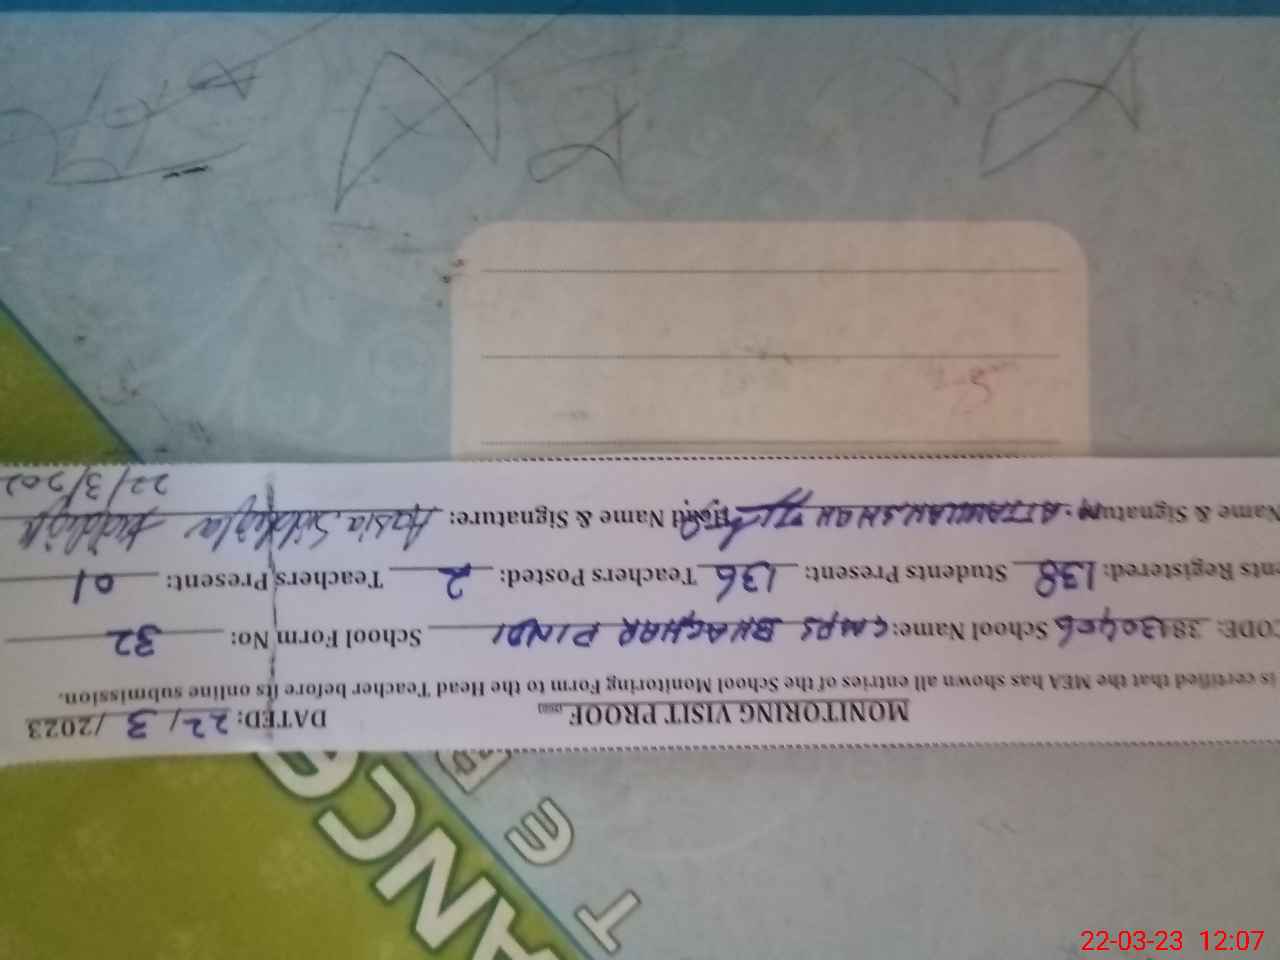 MONITORING VISIT PROOF DATED: 22/3/2023
is certified that the MEA has shown all entries of the School Monitoring Form to the Head Teacher before its online submission.
CODE: 38130406 School Name: GMPS BHAGHAR PINDI School Form No: 32
ents Registered: 138 Students Present: 136 Teachers Posted: 2 Teachers Present: 01
Name & Signature: ATTAULLAH SHAH Head Name & Signature: Aasia Siddiqa
22/3/202
ANCE
TE
22-03-23 12:07